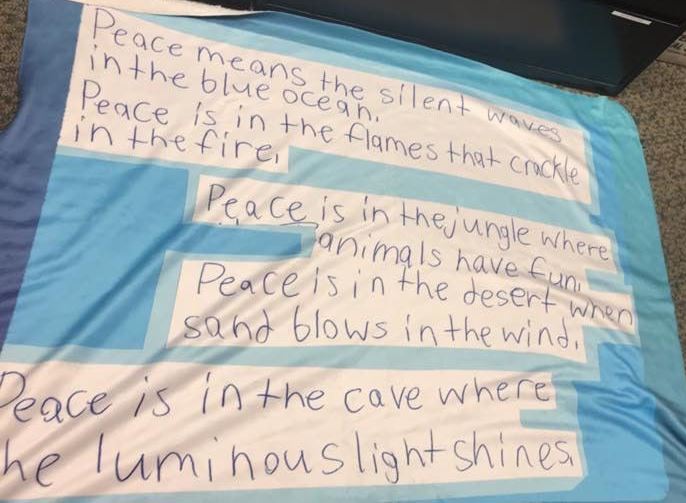 Peace means the silent waves
in the blue ocean.
Peace is in the flames that crackle
in the fire.
Peace is in the jungle where
animals have fun.
Peace is in the desert when
sand blows in the wind.
Peace is in the cave where
he luminous light shines.